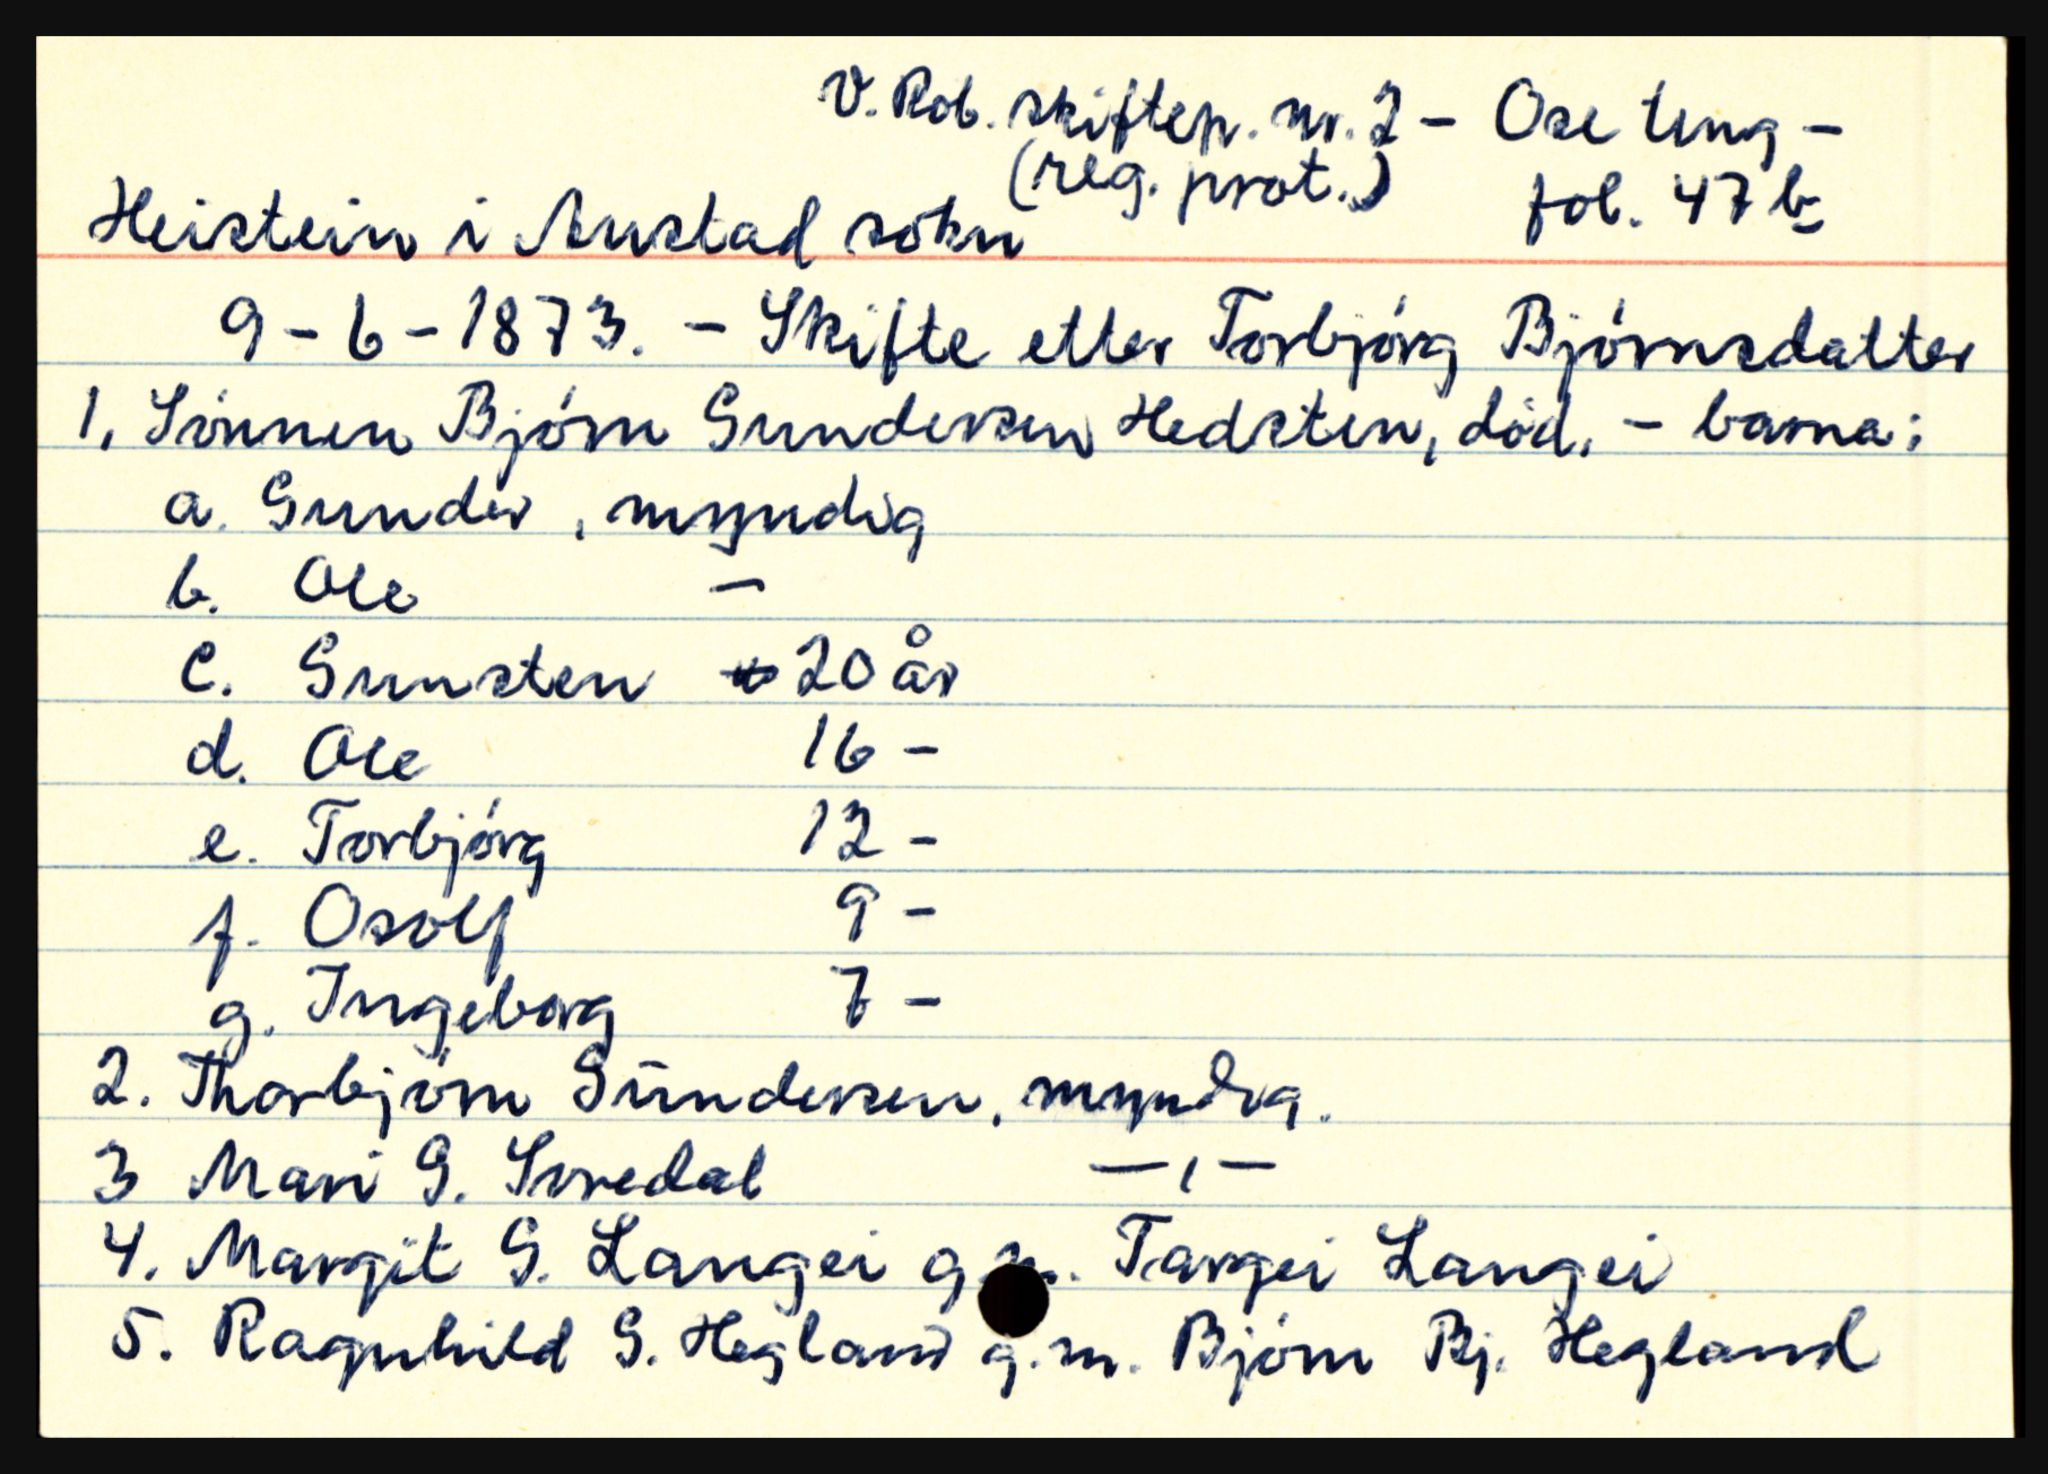 V. Rob. skiftep. nr. 2 – Ose ting –
(reg. prot.) fol. 47 b
Heistein i Austad sokn
9 – 6 – 1873. – Skifte etter Torbjørg Bjørnsdatter
1. Sønnen Bjørn Gundersen Hedsten, død. – barna:
a. Gunder, myndig
b. Ole –
c. Gunsten 20 år
d. Ole 16 –
e. Torbjørg 12 –
f. Osolf 9 –
g. Ingeborg 7 –
2. Thorbjørn Gundersen, myndig.
3 Mari G. Svredal – , –
4. Margit G. Langei g.m. Targei Langei
5. Ragnhild G. Hegland g.m. Bjørn Bj. Hegland